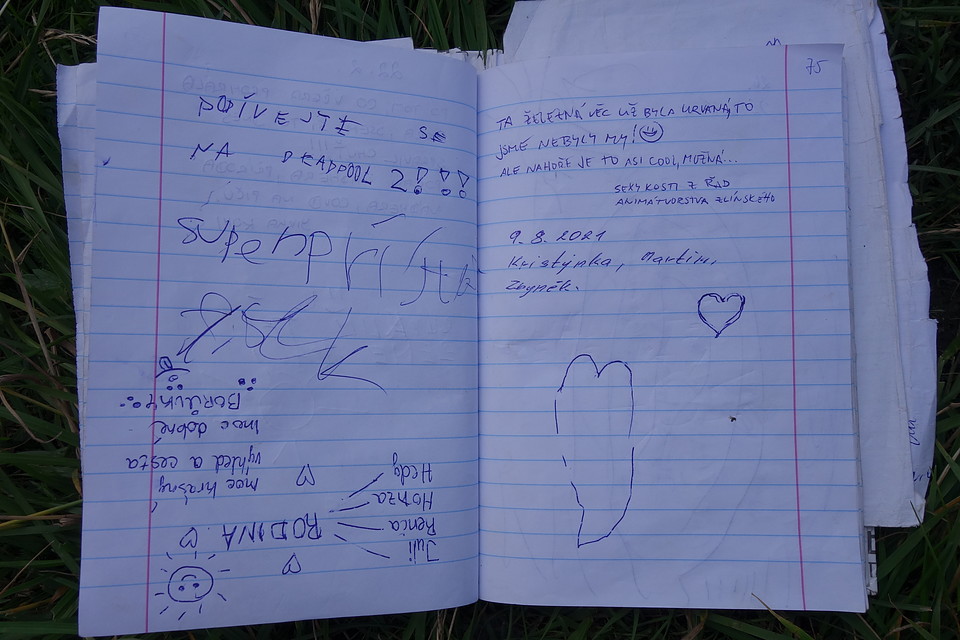 PODÍVEJTE SE
NA DEADPOOL 2!!!
superpříště
RODINA
Juli
Renča
Honza
Hedy
moc hrásný
výhled a cesta
moc dobré
BORŮVKY
75
TA ŽELEZNÁ VĚC UŽ BYLA URVANÁ, TO
JSME NEBYLY MY!
ALE NAHOŘE JE TO ASI COOL, MOŽNÁ...
SEXY KOSTI Z ŘAD
ANIMÁTORSTVA ZLÍNSKÉHO
9. 8. 2021
Kristýnka, Martin,
Zbyněk.